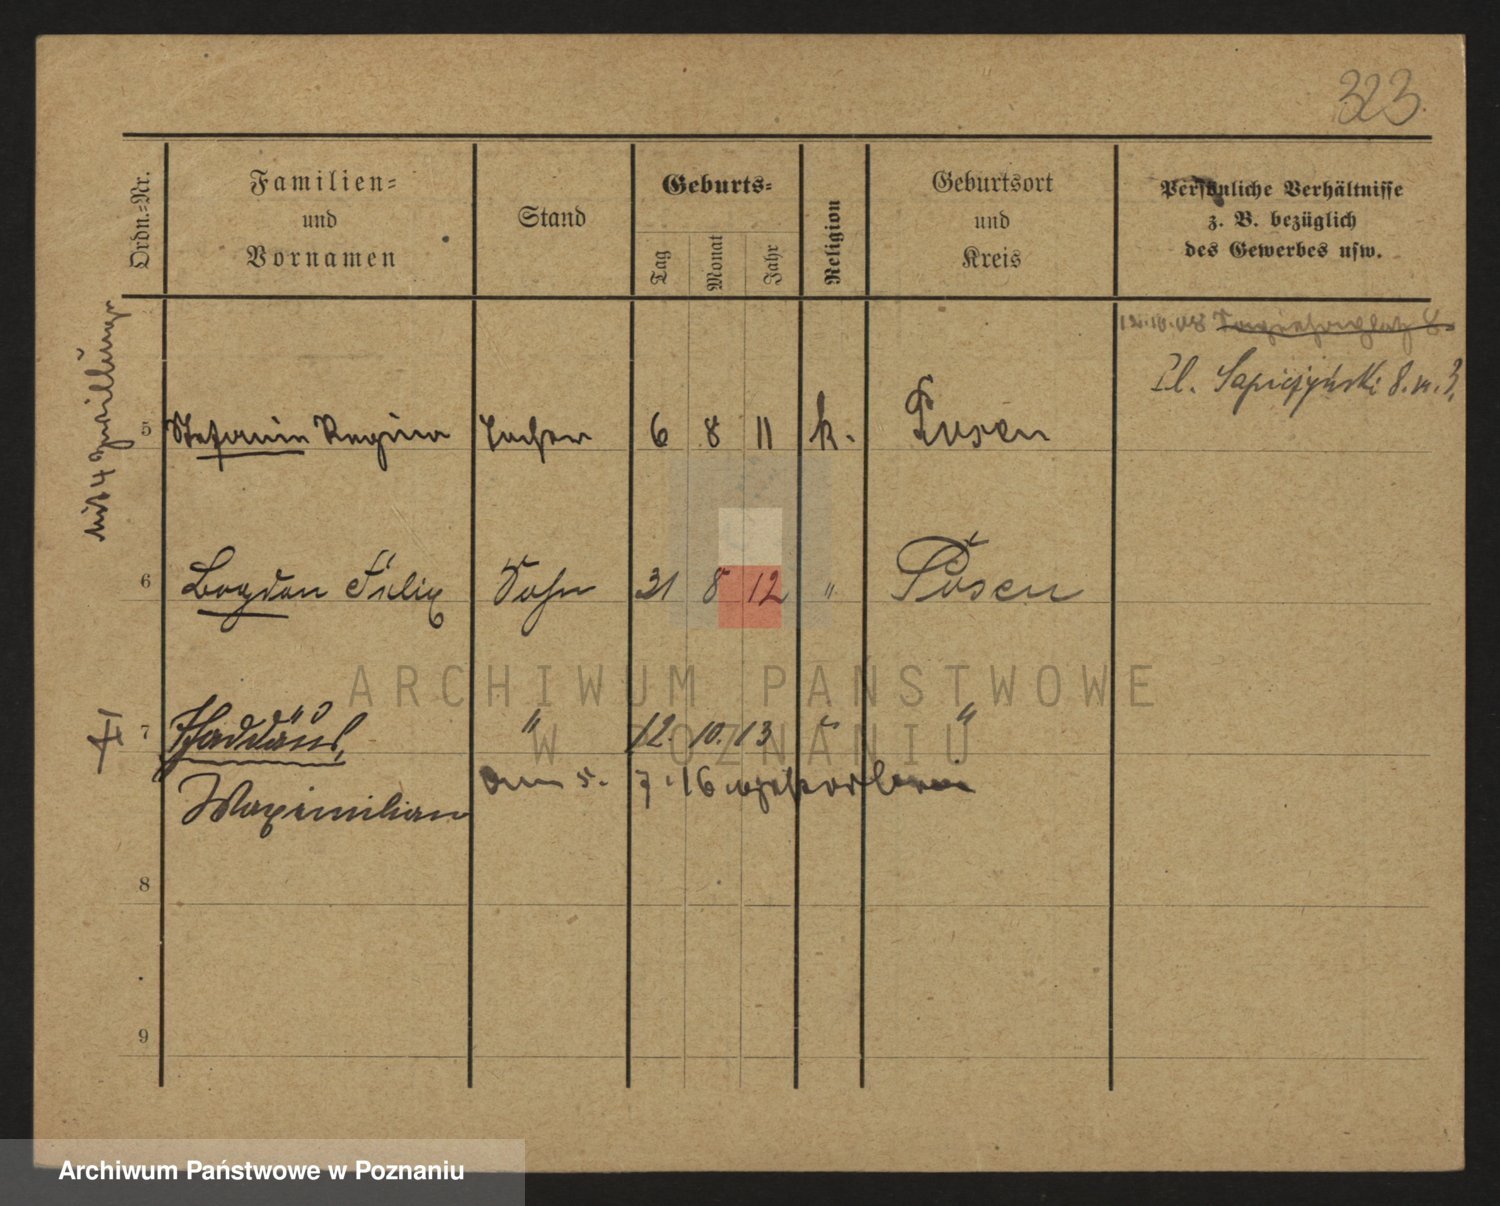 323.
Ordn.-Nr.
Familien-
und
Vornamen
Stand
Geburts-
Tag
Monat
Jahr
Religion
Geburtsort
und
Kreis
Persönliche Verhältnisse
z. B. bezüglich
des Gewerbes usw.
Pl. Sapieżyński 8. m. 3.
5 Stefanie Regina Tochter 6 8 11 k. Posen
6 Bogdan Felix Sohn 31 8 12 " Posen
7 Thaddäus, " 12. 10. 13 " "
Maximilian am 5. 7. 16 gestorben
8
9
ARCHIWUM PAŃSTWOWE
W POZNANIU
Archiwum Państwowe w Poznaniu